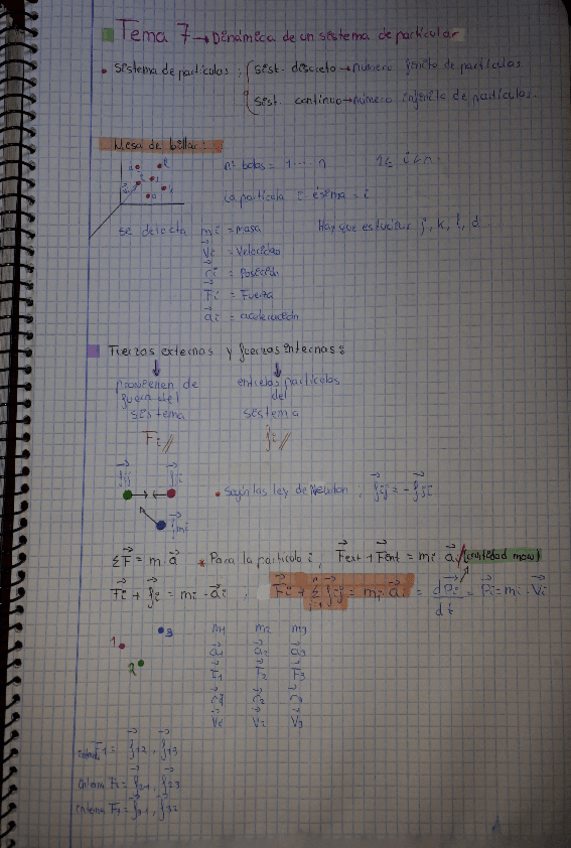 Tema 7 → Dinámica de un sistema de particular
• sistema de partículas: { sist. discreto → número finito de partículas
sist. continuo → número infinito de partículas.
Mesa de billar:
nº bolas = 1 .... n
1 ≤ i ≤ n.
La partícula i ésima = i
se detecta mi = masa
Hay que estudiar j, k, l, d
V⃗i = Velocidad
r⃗i = Posición
F⃗i = Fuerza
a⃗i = aceleración
Fuerzas externas y fuerzas internas:
provienen de fuera del sistema
entre las partículas del sistema
Fi //
fi //
• Según las ley de Newton; f⃗ij = -f⃗ji
ΣF⃗ = m·a⃗ * Para la partícula i, F⃗ext + F⃗int = mi·a⃗ (cantidad mov)
F⃗i + f⃗i = mi·a⃗i, F⃗i + Σ f⃗ij = mi·a⃗i = dP⃗i/dt = P⃗i = mi·V⃗i
1 2 3
m1 m2 m3
a⃗1 a⃗2 a⃗3
F⃗1 F⃗2 F⃗3
V⃗2 V⃗3
F1 = f⃗12, f⃗13
interna F2 = f⃗21, f⃗23
interna F3 = f⃗31, f⃗32